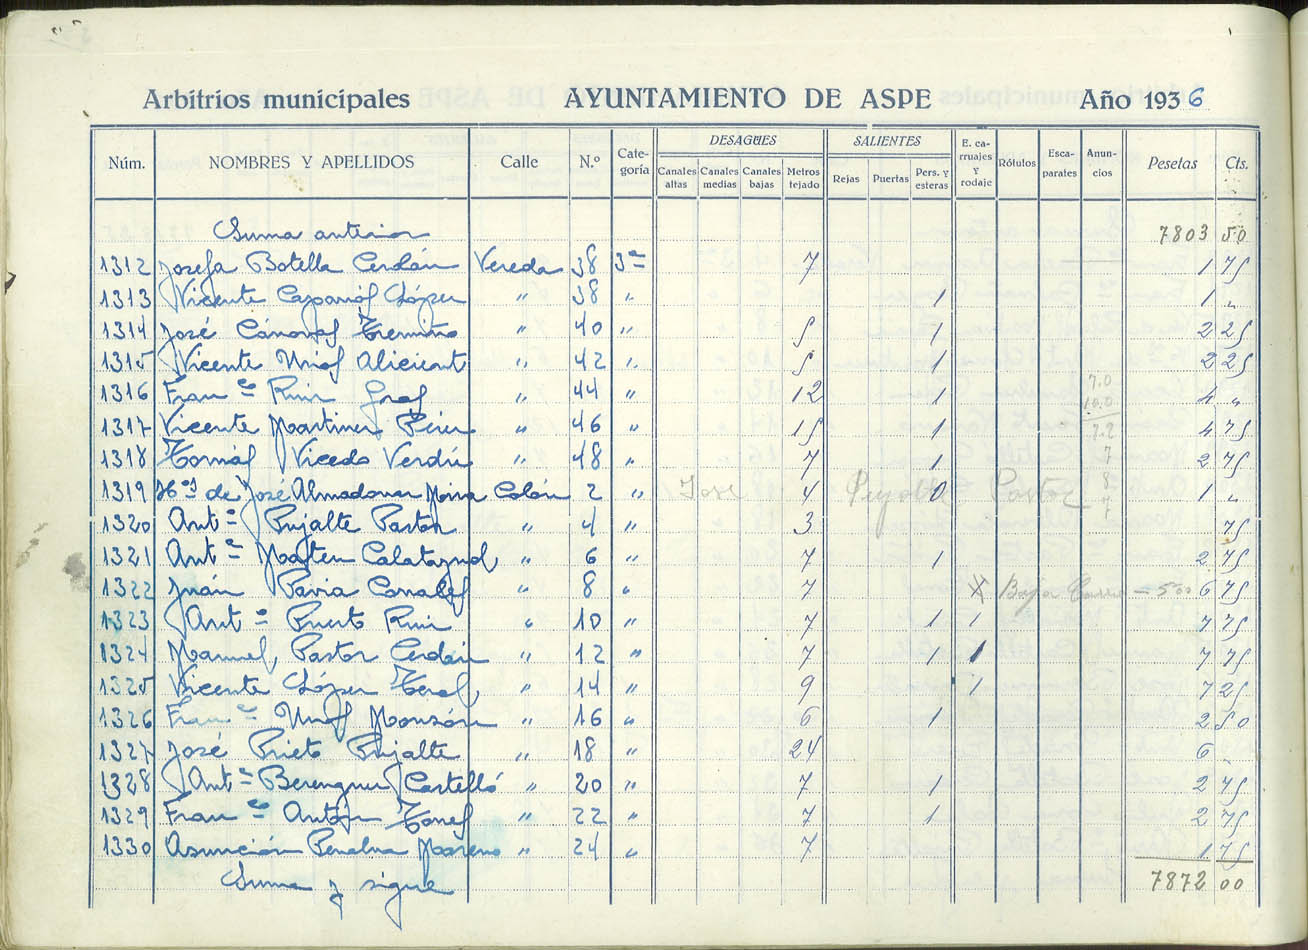 Arbitrios municipales AYUNTAMIENTO DE ASPE Año 1936
Núm. NOMBRES Y APELLIDOS Calle N.º Cate-goría DESAGÜES Canales altas Canales medias Canales bajas Metros tejado SALIENTES Rejas Puertas Pers. y esteras E. ca-rruajes y rodaje Rótulos Esca-parates Anun-cios Pesetas Cts.
Suma anterior 7803 50
1312 Josefa Botella Cerdán Vereda 38 3ª 7 1 75
1313 Vicente Caparrós López " 38 " 1 1 "
1314 José Cánovas Tremiño " 40 " 5 1 2 25
1315 Vicente Mira Alicient " 42 " 5 1 2 25
1316 Franco Ruiz Gras " 44 " 12 1 4 "
1317 Vicente Martinez Pérez " 46 " 15 1 4 75
1318 Tomás Vicedo Verdú " 48 " 7 1 2 75
1319 Hos de José Almodovar Mira Colón 2 " José 4 Pujalte 0 Pastor 1 "
1320 Antº Pujalte Pastor " 4 " 3 75
1321 Antº Calatayud " 6 " 7 1 2 75
1322 Juán Pavia Corrales " 8 " 7 Baja Carro - 5'00 6 75
1323 Antº Puerto Ruiz " 10 " 7 1 1 7 75
1324 Manuel Pastor Cerdán " 12 " 7 1 1 7 75
1325 Vicente López Terol " 14 " 9 1 7 25
1326 Franco Monzón " 16 " 6 1 2 50
1327 José Prieto Pujalte " 18 " 24 6 "
1328 Antº Berenguer Castelló " 20 " 7 1 2 75
1329 Franco Antón Torres " 22 " 7 1 2 75
1330 Asunción Penalva Moreno " 24 " 7 1 75
Suma y sigue 7872 00